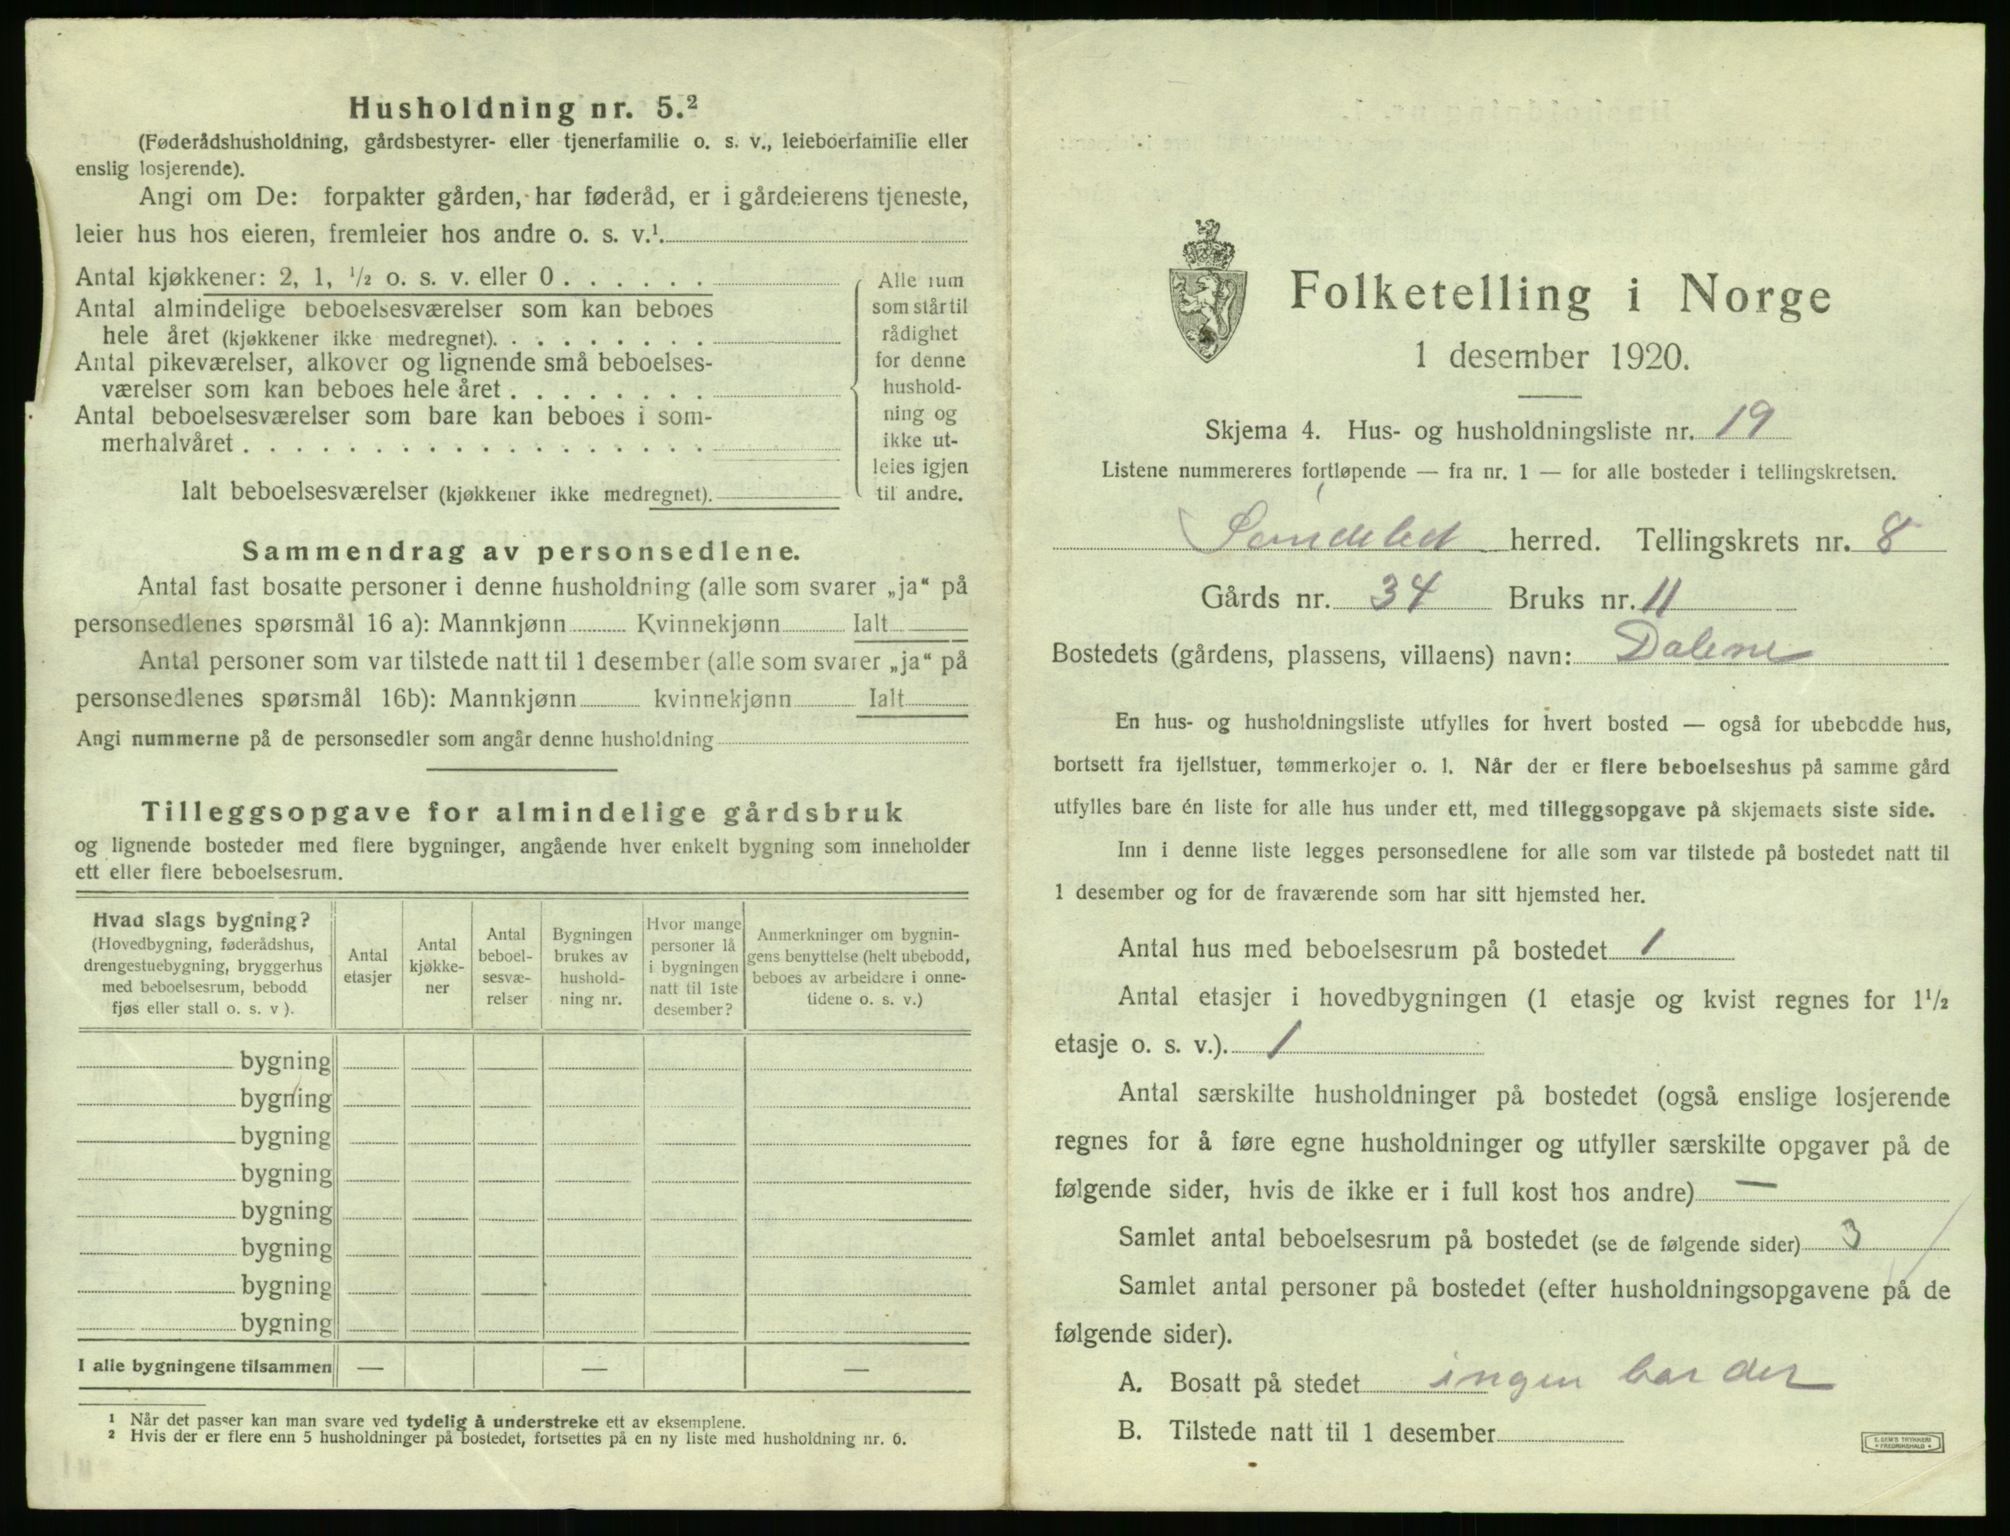 Husholdning nr. 5.²
(Føderådshusholdning, gårdsbestyrer- eller tjenerfamilie o. s. v., leieboerfamilie eller
enslig losjerende).
Angi om De: forpakter gården, har føderåd, er i gårdeierens tjeneste,
leier hus hos eieren, fremleier hos andre o. s. v.¹.
Antal kjøkkener: 2, 1, ¹/₂ o. s. v. eller 0 . . . . . .
Antal almindelige beboelsesværelser som kan beboes
hele året (kjøkkener ikke medregnet). . . . . . . . .
Antal pikeværelser, alkover og lignende små beboelses-
værelser som kan beboes hele året . . . . . . . .
Antal beboelsesværelser som bare kan beboes i som-
merhalvåret . . . . . . . . . . . . . . . . . .
Ialt beboelsesværelser (kjøkkener ikke medregnet).
Alle rum
som står til
rådighet
for denne
hushold-
ning og
ikke ut-
leies igjen
til andre.
Sammendrag av personsedlene.
Antal fast bosatte personer i denne husholdning (alle som svarer „ja“ på
personsedlenes spørsmål 16 a): Mannkjønn Kvinnekjønn Ialt
Antal personer som var tilstede natt til 1 desember (alle som svarer „ja“ på
personsedlenes spørsmål 16b): Mannkjønn kvinnekjønn Ialt
Angi nummerne på de personsedler som angår denne husholdning
Tilleggsopgave for almindelige gårdsbruk
og lignende bosteder med flere bygninger, angående hver enkelt bygning som inneholder
ett eller flere beboelsesrum.
Hvad slags bygning?
(Hovedbygning, føderådshus,
drengestuebygning, bryggerhus
med beboelsesrum, bebodd
fjøs eller stall o. s. v ).
Antal
etasjer
Antal
kjøkke-
ner
Antal
beboel-
sesvæ-
relser
Bygningen
brukes av
hushold-
ning nr.
Hvor mange
personer lå
i bygningen
natt til 1ste
desember?
Anmerkninger om bygnin-
gens benyttelse (helt ubebodd,
beboes av arbeidere i onne-
tidene o. s. v.)
bygning
bygning
bygning
bygning
bygning
bygning
bygning
bygning
I alle bygningene tilsammen — — —
¹ Når det passer kan man svare ved tydelig å understreke ett av eksemplene.
² Hvis der er flere enn 5 husholdninger på bostedet, fortsettes på en ny liste med husholdning nr. 6.
Folketelling i Norge
1 desember 1920.
Skjema 4. Hus- og husholdningsliste nr. 19
Listene nummereres fortløpende — fra nr. 1 — for alle bosteder i tellingskretsen.
Søndeled herred. Tellingskrets nr. 8
Gårds nr. 34 Bruks nr. 11
Bostedets (gårdens, plassens, villaens) navn: Dalene
En hus- og husholdningsliste utfylles for hvert bosted — også for ubebodde hus,
bortsett fra fjellstuer, tømmerkojer o. l. Når der er flere beboelseshus på samme gård
utfylles bare én liste for alle hus under ett, med tilleggsopgave på skjemaets siste side.
Inn i denne liste legges personsedlene for alle som var tilstede på bostedet natt til
1 desember og for de fraværende som har sitt hjemsted her.
Antal hus med beboelsesrum på bostedet 1
Antal etasjer i hovedbygningen (1 etasje og kvist regnes for 1¹/₂
etasje o. s. v.). 1
Antal særskilte husholdninger på bostedet (også enslige losjerende
regnes for å føre egne husholdninger og utfyller særskilte opgaver på de
følgende sider, hvis de ikke er i full kost hos andre) —
Samlet antal beboelsesrum på bostedet (se de følgende sider) 3
Samlet antal personer på bostedet (efter husholdningsopgavene på de
følgende sider).
A. Bosatt på stedet ingen bor der
B. Tilstede natt til 1 desember
E. SEM'S TRYKKERI
FREDRIKSHALD